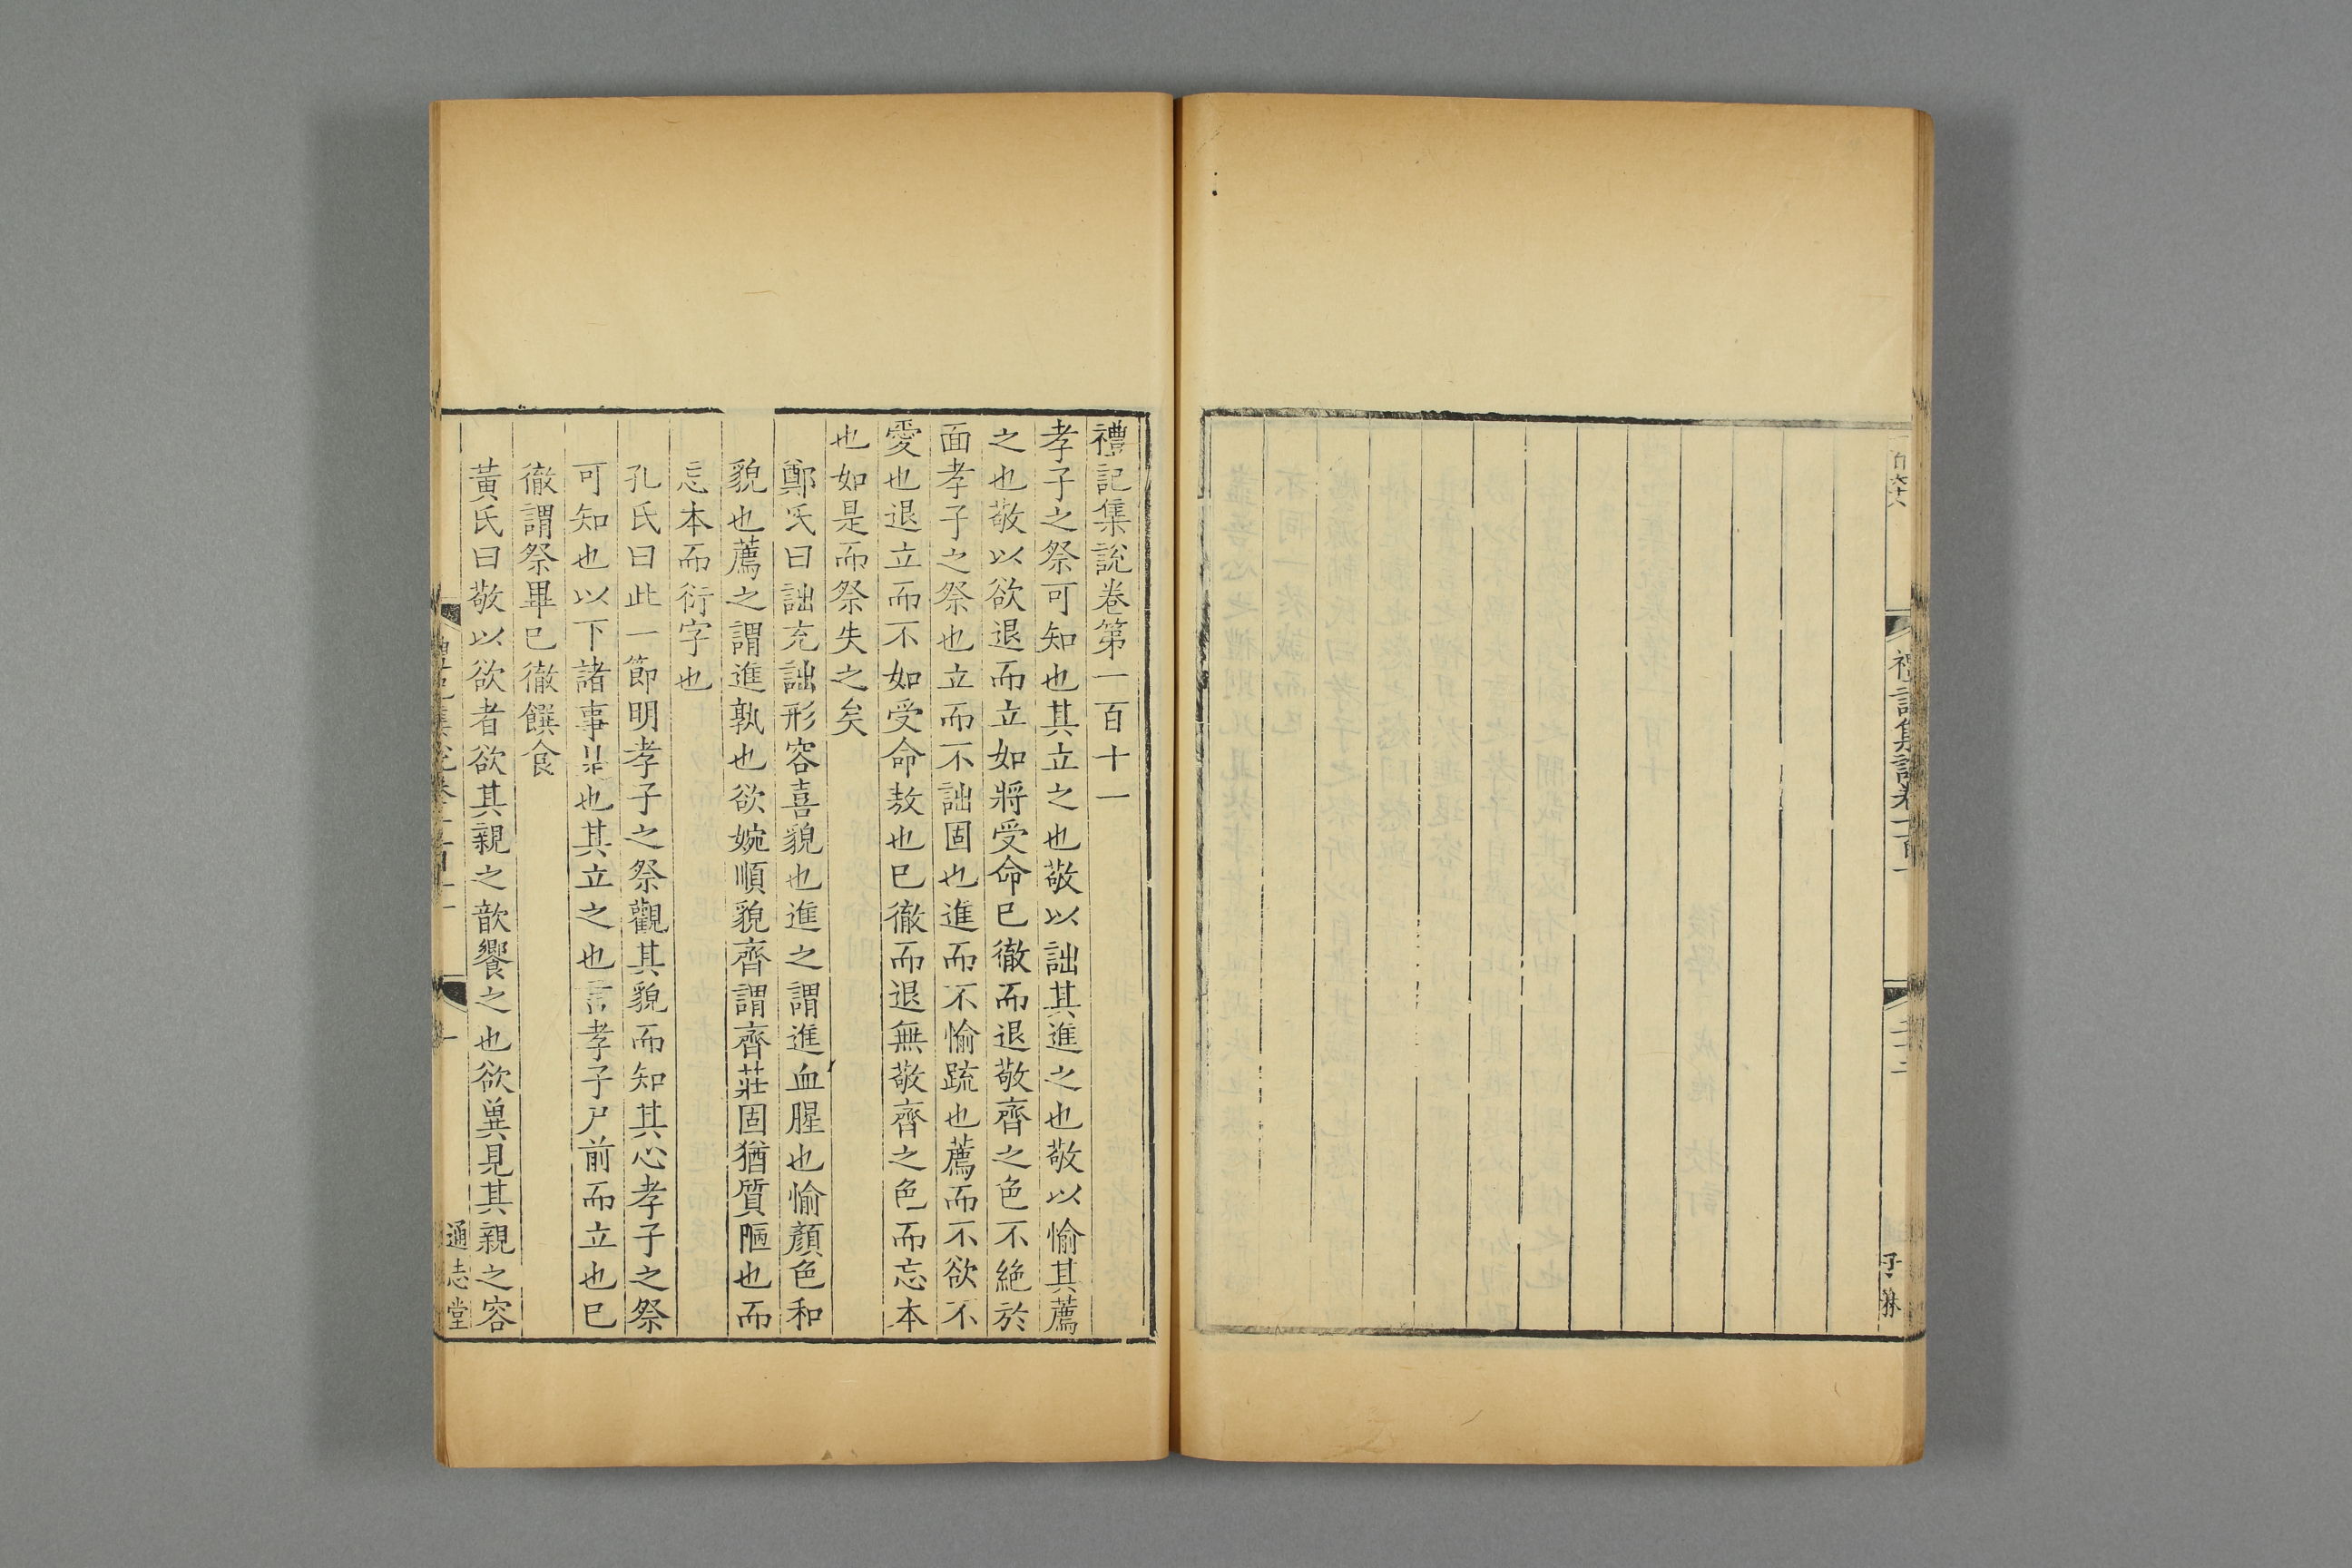 禮記集說卷第一百十一
孝子之祭可知也其立之也敬以詘其進之也敬以愉其薦
之也敬以欲退而立如將受命已徹而退敬齊之色不絕於
面孝子之祭也立而不詘固也進而不愉疏也薦而不欲不
愛也退立而不如受命敖也已徹而退無敬齊之色而忘本
也如是而祭失之矣
鄭氏曰詘充詘形容喜貌也進之謂進血腥也愉顏色和
貌也薦之謂進孰也欲婉順貌齊謂齊莊固猶質陋也而
忘本而衍字也
孔氏曰此一節明孝子之祭觀其貌而知其心孝子之祭
可知也以下諸事是也其立之也言孝子尸前而立也已
徹謂祭畢已徹饌食
黃氏曰敬以欲者欲其親之歆饗之也欲兾見其親之容
通志堂
禮記集說卷一百十
子琳